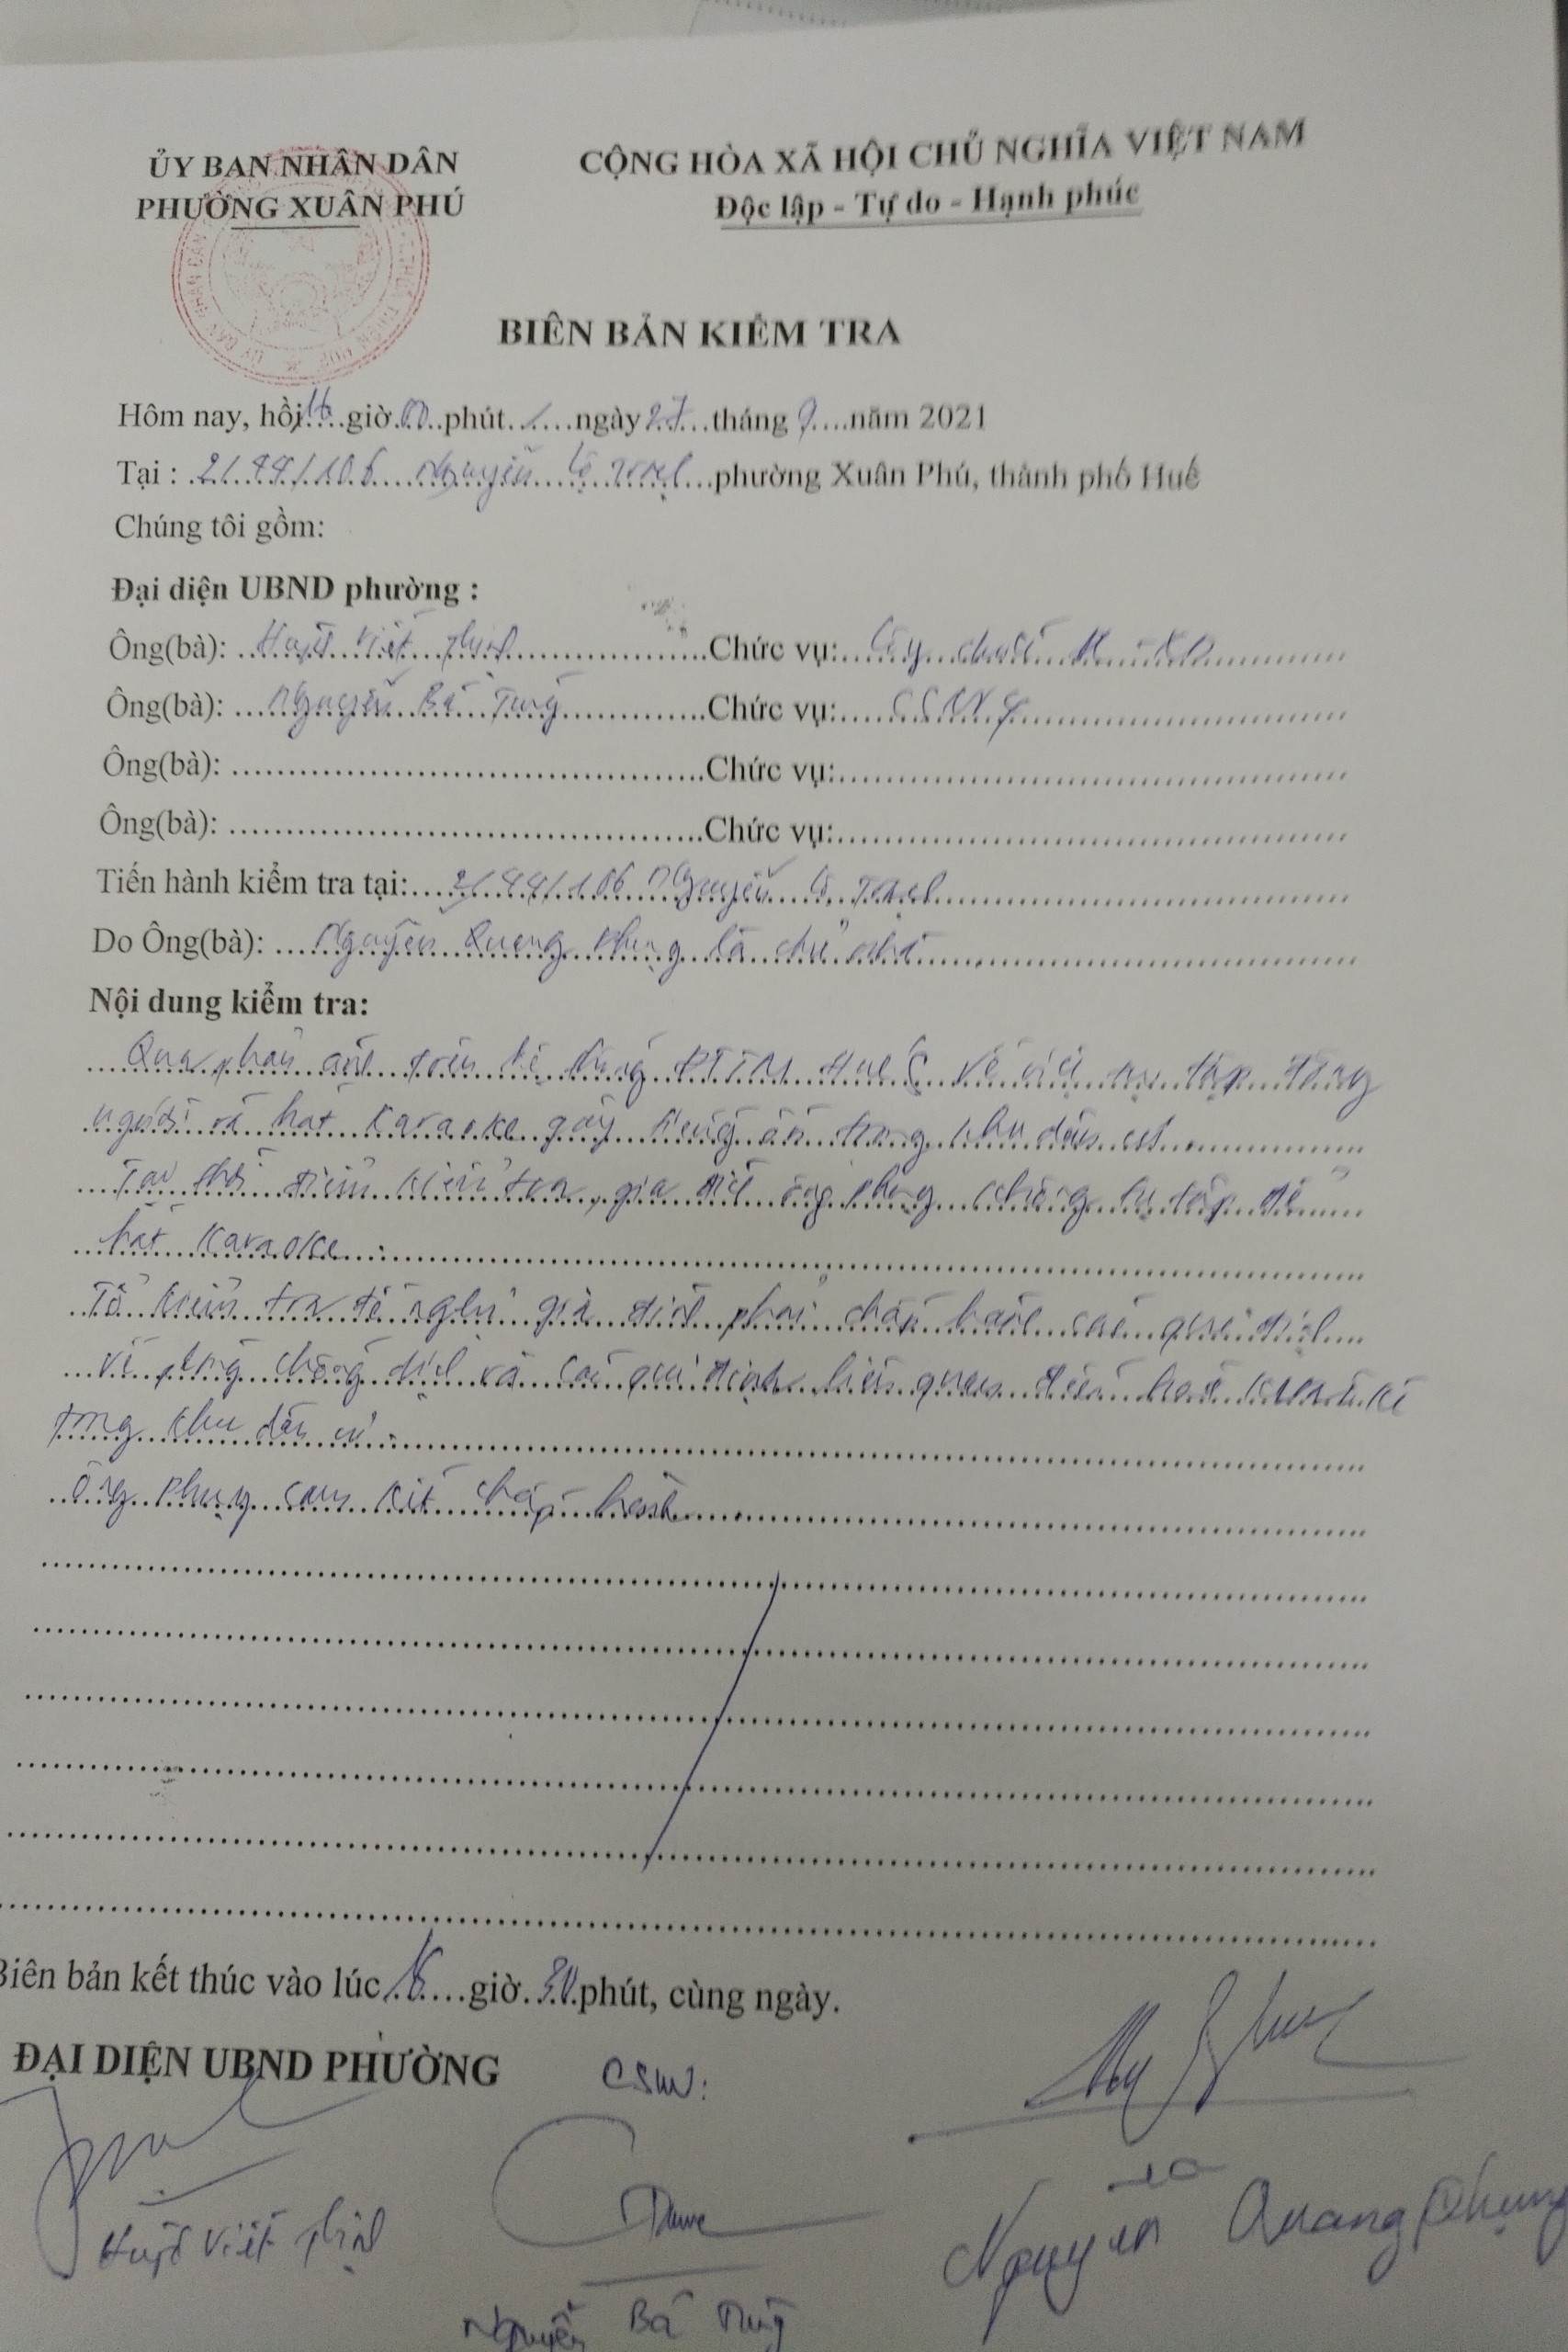 ỦY BAN NHÂN DÂN
PHƯỜNG XUÂN PHÚ
CỘNG HÒA XÃ HỘI CHỦ NGHĨA VIỆT NAM
Độc lập - Tự do - Hạnh phúc
BIÊN BẢN KIỂM TRA
Hôm nay, hồi 16 giờ 00 phút ngày 27 tháng 9 năm 2021
Tại : 2/44/106 Nguyễn Lộ Trạch phường Xuân Phú, thành phố Huế
Chúng tôi gồm:
Đại diện UBND phường :
Ông(bà): Huỳnh Viết Thịnh Chức vụ:
Ông(bà): Nguyễn Bá Tùng Chức vụ: CSKV
Ông(bà): Chức vụ:
Ông(bà): Chức vụ:
Tiến hành kiểm tra tại: 2/44/106 Nguyễn Lộ Trạch
Do Ông(bà): Nguyễn Quang Phụng là chủ nhà
Nội dung kiểm tra:
Qua phản ánh trên hệ thống ĐTTM Huế S về việc tụ tập đông
người và hát karaoke gây tiếng ồn trong khu dân cư.
Tại thời điểm kiểm tra, gia đình ông Phụng không tụ tập để
hát karaoke.
Tổ kiểm tra đề nghị gia đình phải chấp hành các quy định
về phòng chống dịch và các quy định liên quan đến hát karaoke
trong khu dân cư.
Ông Phụng cam kết chấp hành
Biên bản kết thúc vào lúc 16 giờ 30 phút, cùng ngày.
ĐẠI DIỆN UBND PHƯỜNG
CSKV:
Huỳnh Viết Thịnh
Nguyễn Bá Tùng
Nguyễn Quang Phụng